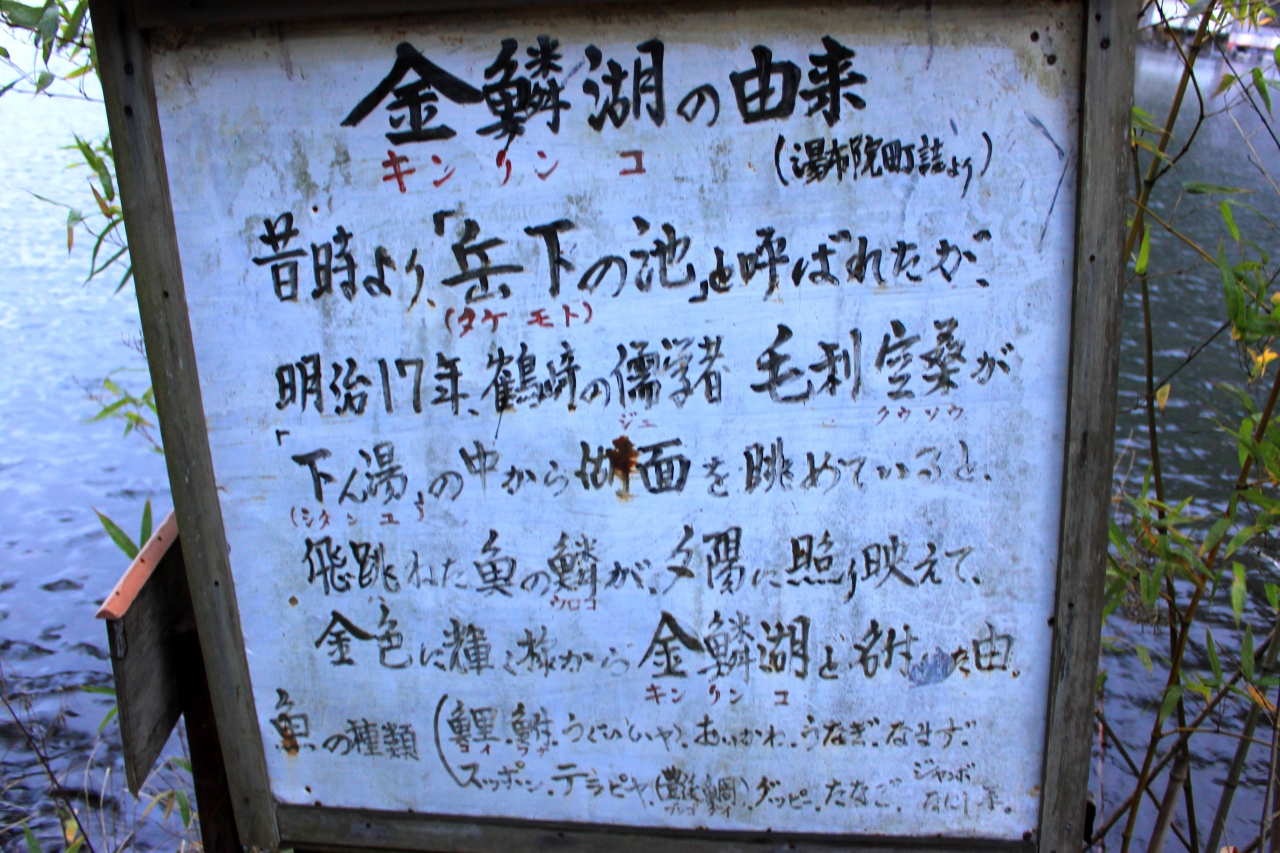 金鱗湖の由来
キンリンコ
(湯布院町誌より)
昔時より、「岳下の池」と呼ばれたが、
(タケモト)
明治17年、鶴崎の儒学者 毛利空桑が
ジュ クウソウ
「下ん湯」の中から湖面を眺めていると、
(シタンユ)
飛跳ねた魚の鱗が、夕陽に照り映えて、
ウロコ
金色に輝く様から金鱗湖と名付けた由。
キンリンコ
魚の種類 (鯉.鮒.うぐい.はや.おいかわ.うなぎ.なまず.
コイ フナ
ジャンボ
スッポン.テラピヤ.グッピー.たなご.